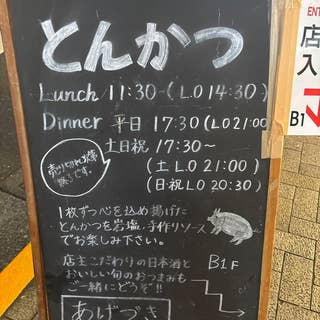 とんかつ
Lunch 11:30-(LO 14:30)
Dinner 平日 17:30 (LO 21:00)
土日祝 17:30~
(土 LO 21:00)
(日・祝 LO 20:30)
売り切れ次第
終了です。
1枚ずつ心を込め揚げた
とんかつを岩塩、手作りソース
でお楽しみ下さい。
店主こだわりの日本酒と
おいしい旬のおつまみも
ご一緒にどうぞ!!
B1F
あげづき
ENT
店
入
B1